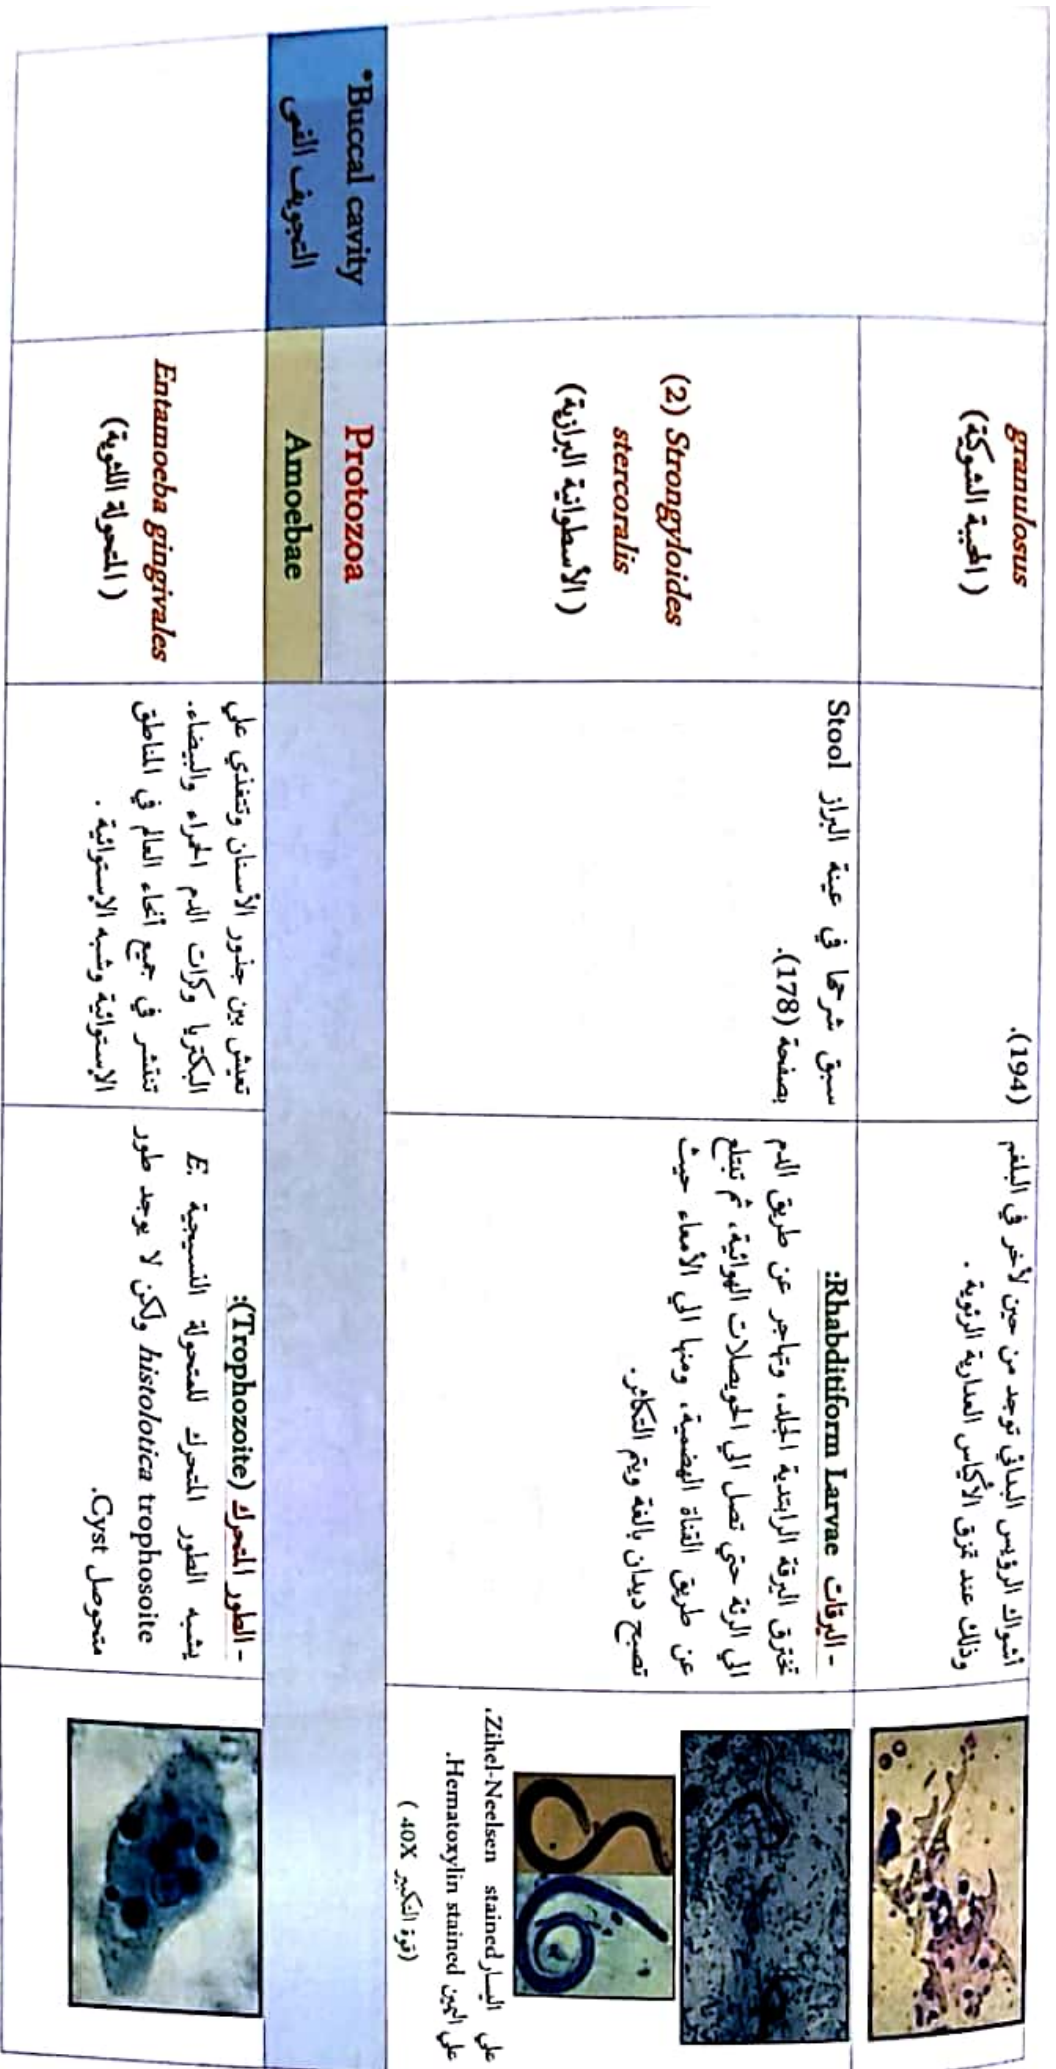 granulosus
(المحببة الشوكية)
(194).
أشواك الرؤيس البدائي توجد من حين لآخر في البلغم
وذلك عند تمزق الأكياس العدارية الرئوية .
(2) Strongyloides
stercoralis
(الأسطوانية البرازية)
سبق شرحها في عينة البراز Stool
بصفحة (178).
- اليرقات Rhabditiform Larvae:
تخترق اليرقة الرابتدية الجلد، وتهاجر عن طريق الدم
الي الرئة حتي تصل الي الحويصلات الهوائية، ثم تبتلع
عن طريق القناة الهضمية، ومنها الي الأمعاء حيث
تصبح ديدان بالغة ويتم التكاثر.
علي اليسار Zihel-Neelsen stained.
علي اليمين Hematoxylin stained.
(قوة التكبير 40X)
*Buccal cavity
التجويف الفمى
Protozoa
Amoebae
Entamoeba gingivales
(المتحولة اللثوية)
تعيش بين جذور الأسنان وتتغذي علي
البكتريا وكرات الدم الحمراء والبيضاء.
تنتشر في جميع أنحاء العالم في المناطق
الإستوائية وشبه الإستوائية .
- الطور المتحرك (Trophozoite):
يشبه الطور المتحرك للمتحولة النسيجية E.
histolotica trophosoite ولكن لا يوجد طور
متحوصل Cyst.